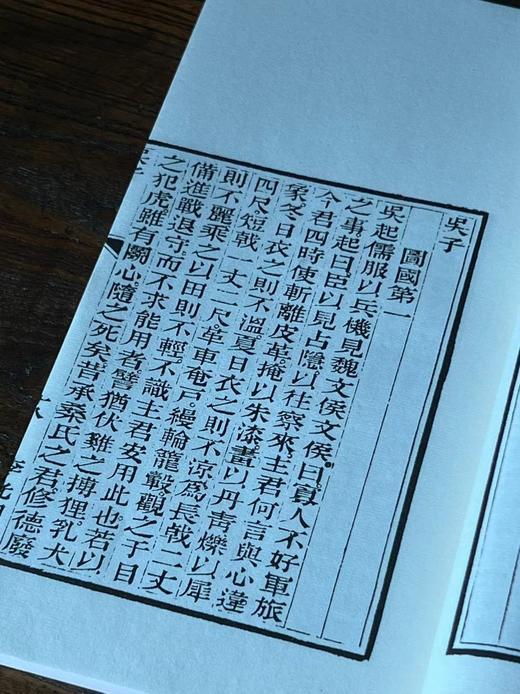 吳子
圖國第一
吳起儒服以兵機見魏文侯文侯曰寡人不好軍旅
之事起曰臣以見占隱以往察來主君何言與心違
今君四時使斬離皮革掩以朱漆畫以丹青爍以犀
象冬日衣之則不溫夏日衣之則不涼為長戟二丈
四尺短戟一丈二尺革車奄戶縵輪籠轂觀之于目
則不麗乘之以田則不輕不識主君安用此也若以
備進戰退守而不求能用者譬猶伏雞之搏狸乳犬
之犯虎雖有鬭心隨之死矣昔承桑氏之君修德廢